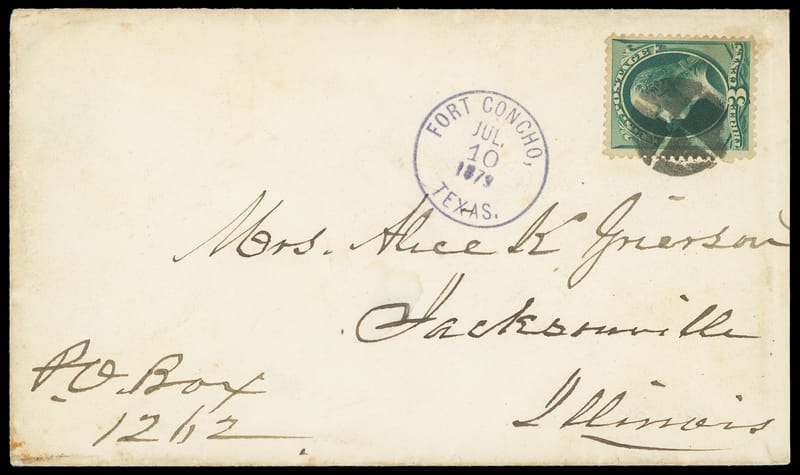 POSTAGE
THREE 3 CENTS
FORT CONCHO,
JUL.
10
1879
TEXAS.
Mrs. Alice K Grierson
Jacksonville
Illinois
P.O. Box
1262